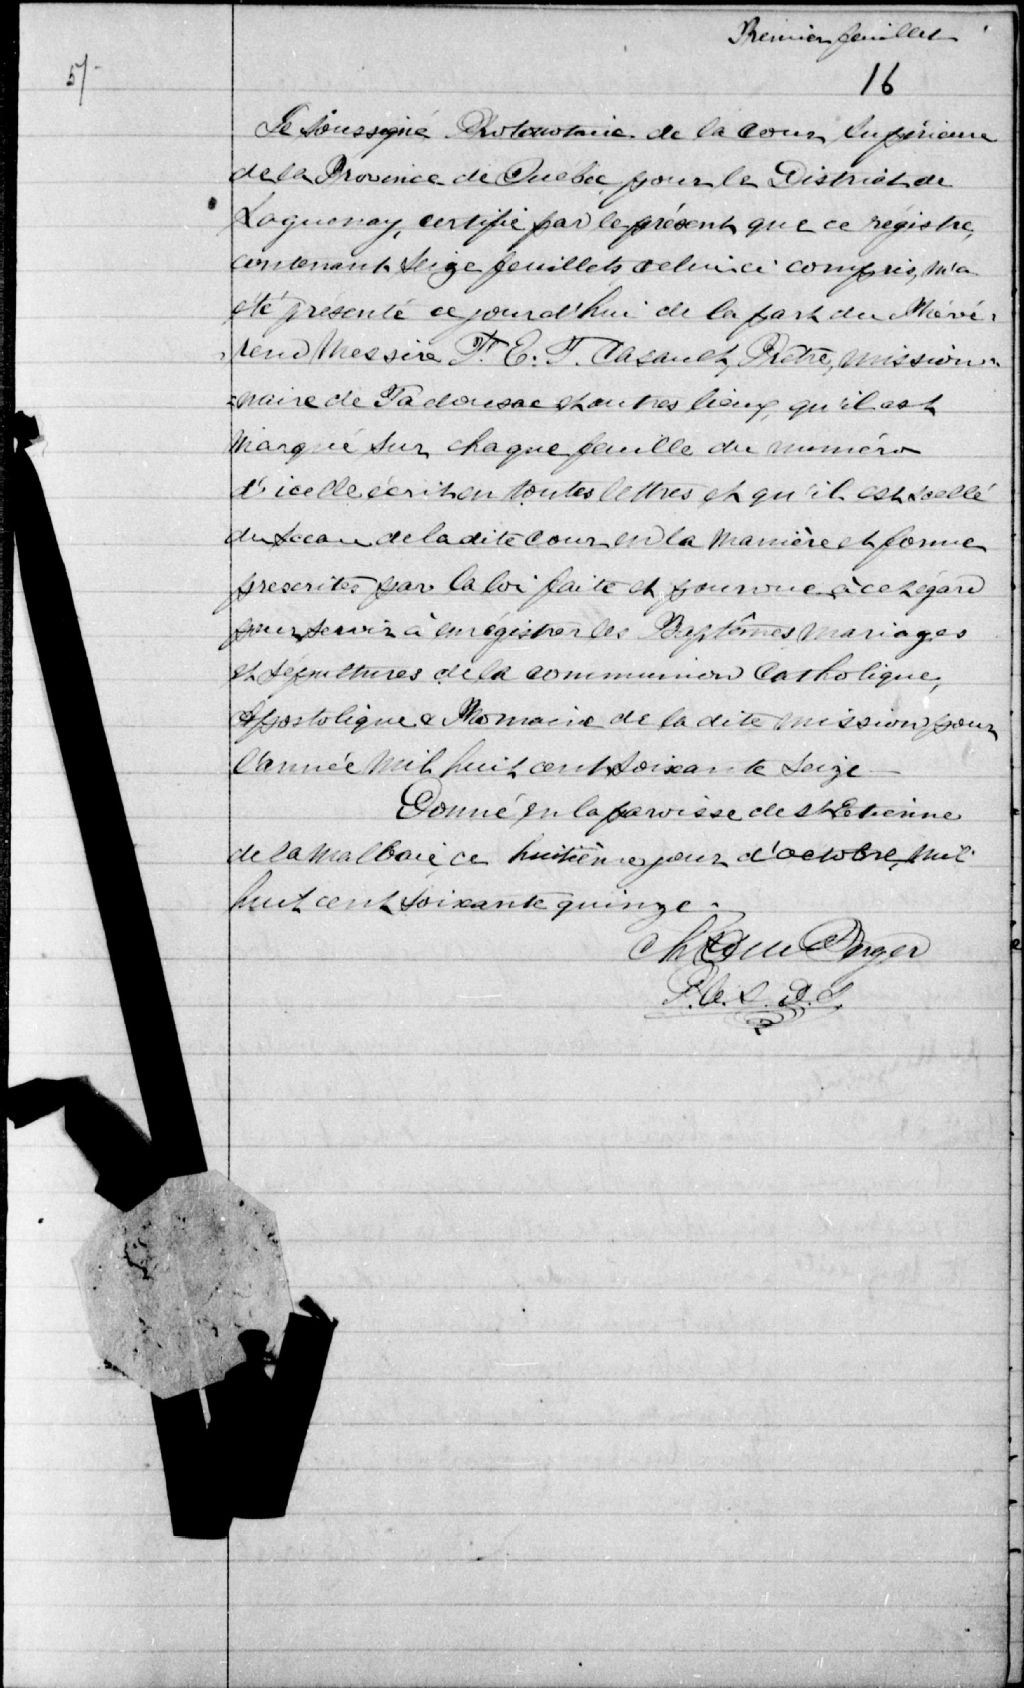 Premier feuillet
16
5/-
Le Soussigné Protonotaire de la Cour Supérieure
de la Province de Québec, pour le District de
Saguenay, certifie par le présent que ce régistre,
contenant Seize feuillets celui-ci compris, m'a
été présenté ce jourd'hui de la part du Révé-
-rend Messire F. E. F. Casault, Prêtre, mission=
=naire de Tadousac et autres lieux, qu'il est
Marqué sur chaque feuille du numéro
d'icelle écrit en toutes lettres et qu'il est scellé
du Sceau de la dite Cour en la Manière et forme
prescrites par la loi faite et pourvue à ce égard
pour servir à enrégistrer les Baptêmes, Mariages
et Sépultures de la communion Catholique,
Apostolique & Romaine de la dite Mission, pour
l'année Mil huit cent soixante Seize —
Donné en la paroisse de St Etienne
de la Malbaie, ce huitième jour d'octobre, Mil
huit cent soixante quinze.
Chs Du Berger
P. C. S. D. S.